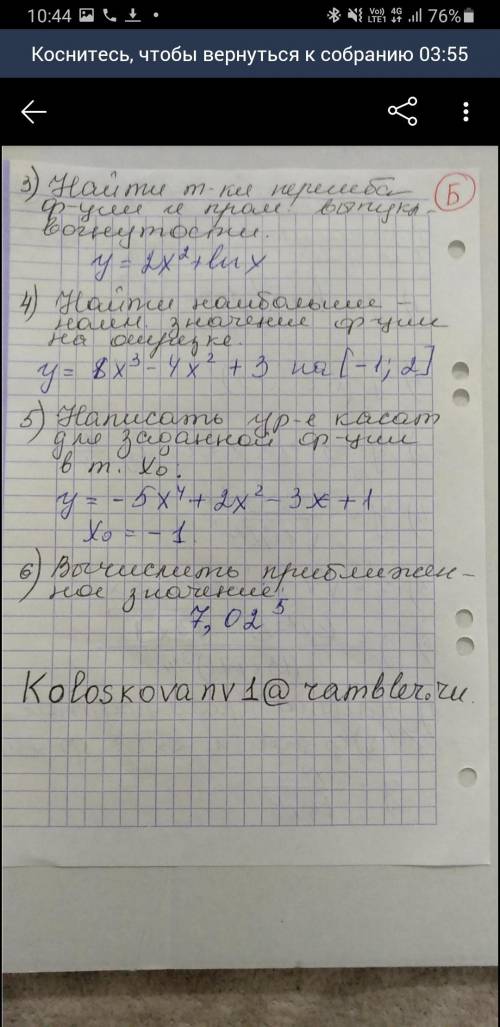 10:44
Vo)) 4G
LTE1
76%
Коснитесь, чтобы вернуться к собранию 03:55
Б
3) Найти т-ки перегиба
ф-ции и пром. выпукл.-
вогнутости.
y = 2x² + ln x
4) Найти наибольшее -
наим. значение ф-ции
на отрезке.
y = 8x³ - 4x² + 3 на [-1; 2]
5) Написать ур-е касат
для заданной ф-ции
в т. x₀:
y = -5x⁴ + 2x² - 3x + 1
x₀ = -1.
6) Вычислить приближен-
ное значение:
7,02⁵
Koloskovanv1@rambler.ru.